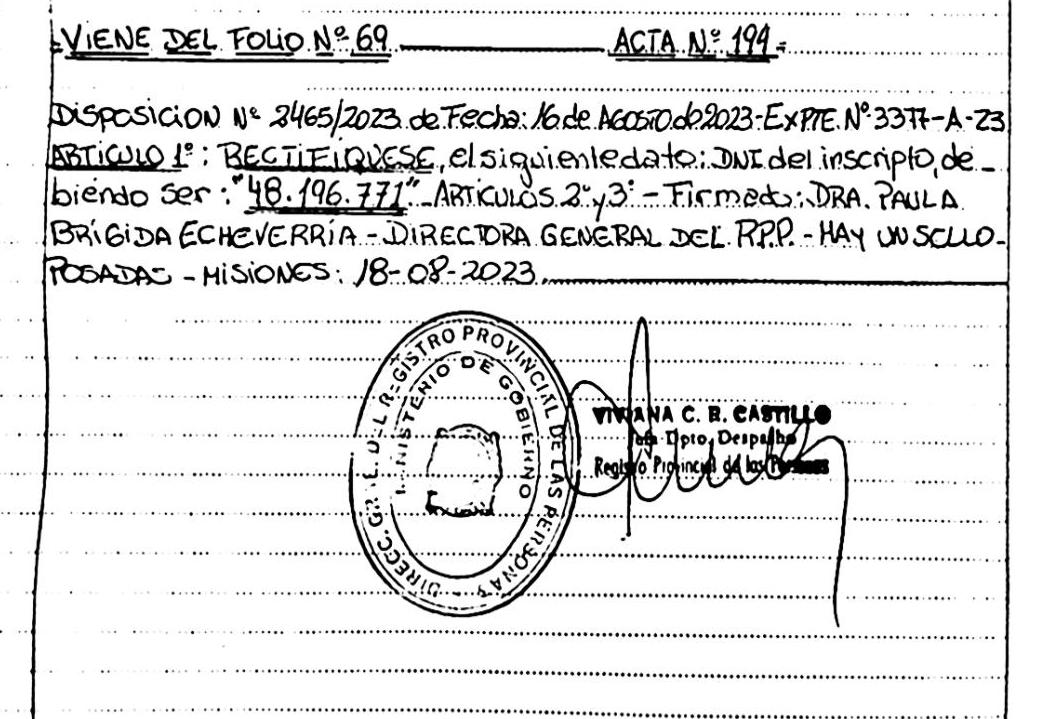 =VIENE DEL FOLIO Nº 69 ACTA Nº 194=
DISPOSICION Nº 2465/2023 de Fecha: 16 de AGOSTO de 2023-EXPTE. Nº 3377-A-23
ARTICULO 1º: RECTIFIQUESE, el siguiente dato: DNI del inscripto, de_
biendo ser: "48.196.771"_ARTICULOS 2º y 3º - Firmado: DRA. PAULA
BRIGIDA ECHEVERRÍA - DIRECTORA GENERAL DEL R.P.P. - HAY UN SELLO-
POSADAS - MISIONES: 18-08-2023.
DIRECC. GRAL. DEL REGISTRO PROVINCIAL DE LAS PERSONAS
MINISTERIO DE GOBIERNO
VIVIANA C. R. CASTILLO
Jefa Dpto. Despacho
Registro Provincial de las Personas